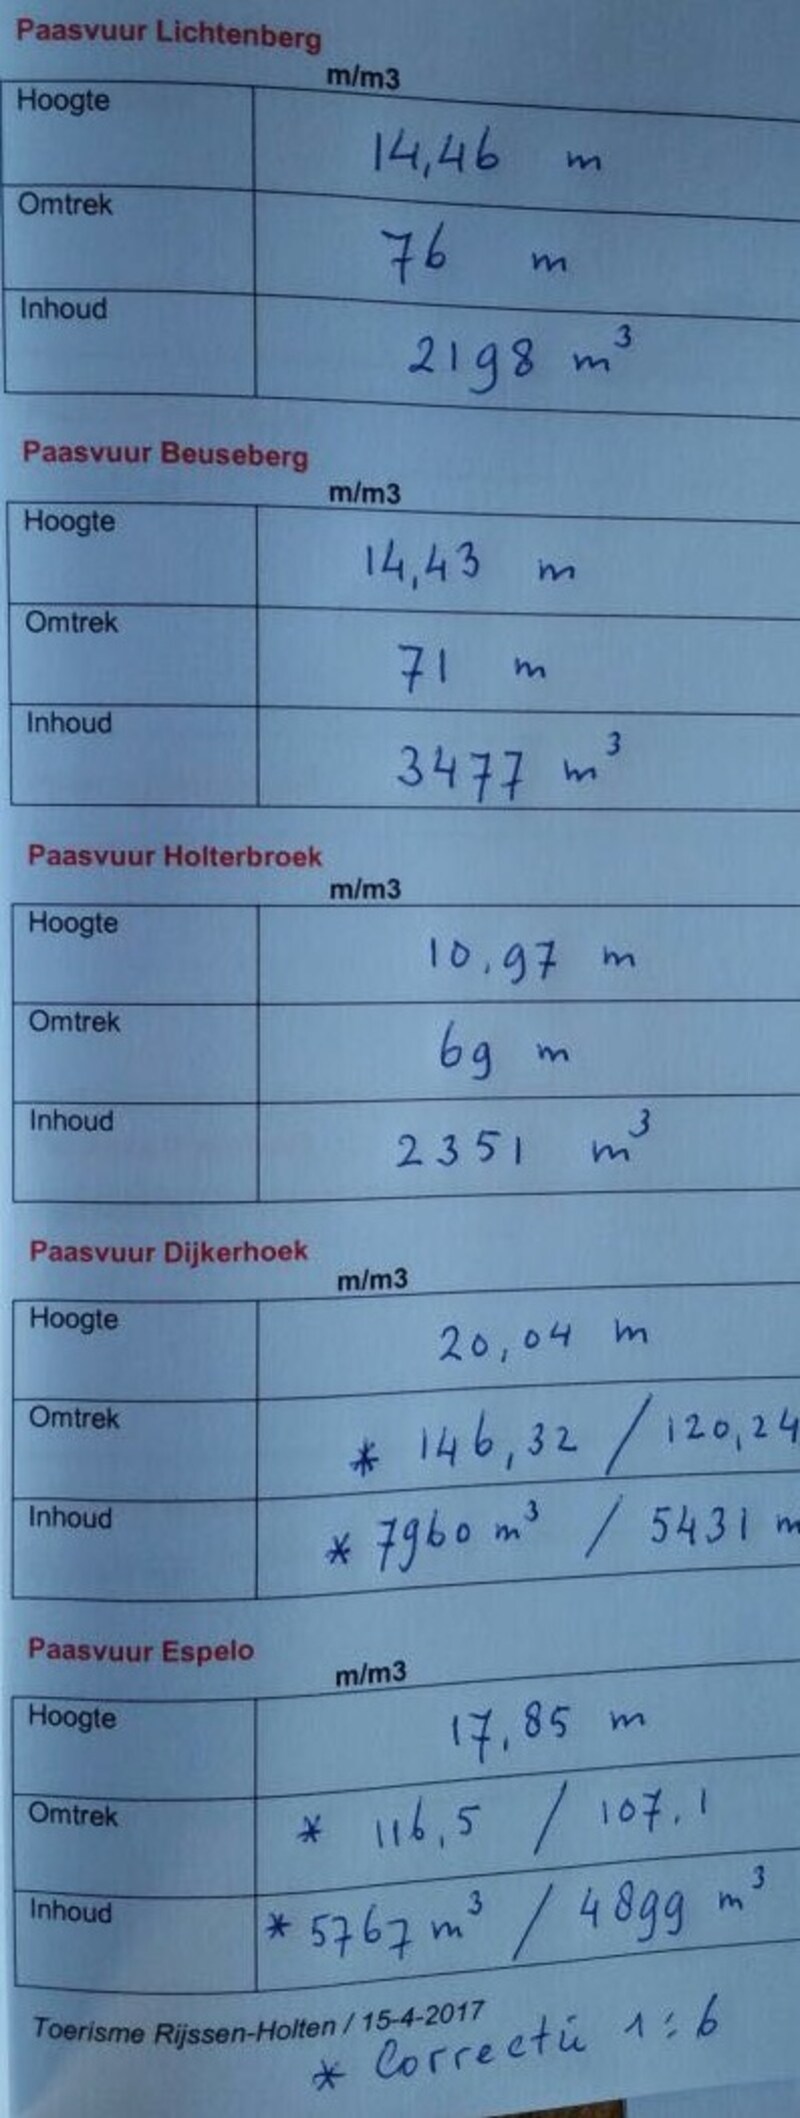 Paasvuur Lichtenberg
m/m3
Hoogte 14,46 m
Omtrek 76 m
Inhoud 2198 m³
Paasvuur Beuseberg
m/m3
Hoogte 14,43 m
Omtrek 71 m
Inhoud 3477 m³
Paasvuur Holterbroek
m/m3
Hoogte 10,97 m
Omtrek 69 m
Inhoud 2351 m³
Paasvuur Dijkerhoek
m/m3
Hoogte 20,04 m
Omtrek * 146,32 / 120,24
Inhoud * 7960 m³ / 5431 m
Paasvuur Espelo
m/m3
Hoogte 17,85 m
Omtrek * 116,5 / 107,1
Inhoud * 5767 m³ / 4899 m³
Toerisme Rijssen-Holten / 15-4-2017
* Correctie 1:6